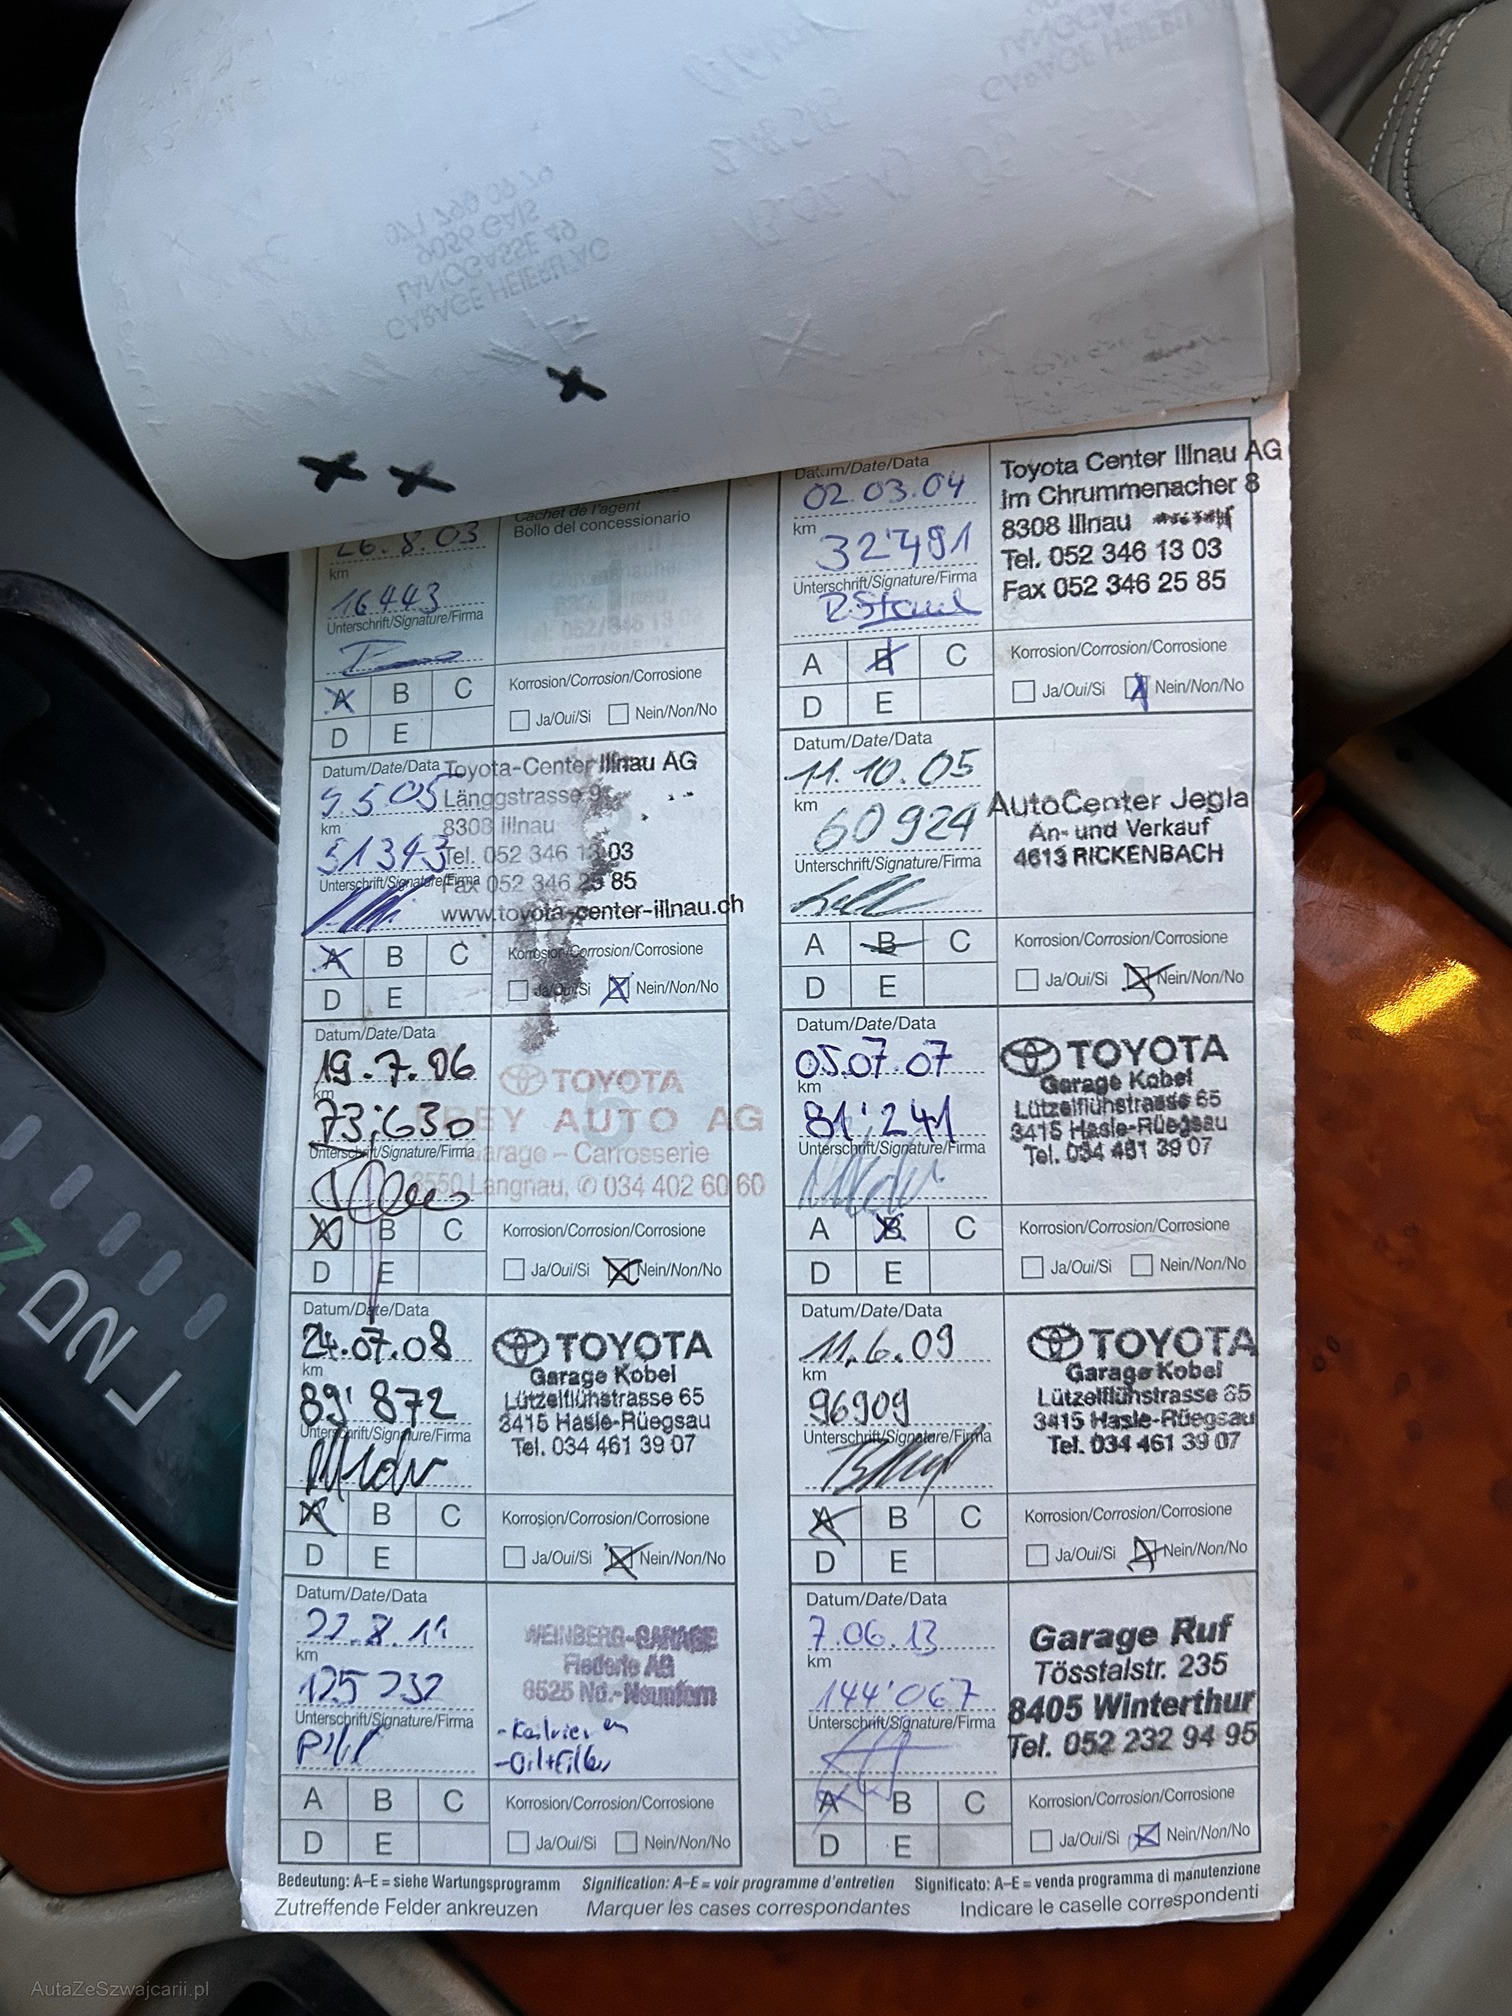 Cachet de l'agent
Bollo del concessionario
26.8.03
km
16443
Unterschrift/Signature/Firma
A B C
D E
Korrosion/Corrosion/Corrosione
Ja/Oui/Si Nein/Non/No
Datum/Date/Data
02.03.04
km
32'491
Unterschrift/Signature/Firma
Toyota Center Illnau AG
Im Chrummenacher 8
8308 Illnau
Tel. 052 346 13 03
Fax 052 346 25 85
A B C
D E
Korrosion/Corrosion/Corrosione
Ja/Oui/Si Nein/Non/No
Datum/Date/Data
9.5.05
km
51343
Unterschrift/Signature/Firma
Toyota-Center Illnau AG
Länggstrasse 9
8308 Illnau
Tel. 052 346 13 03
Fax 052 346 25 85
www.toyota-center-illnau.ch
A B C
D E
Korrosion/Corrosion/Corrosione
Ja/Oui/Si Nein/Non/No
Datum/Date/Data
11.10.05
km
60924
Unterschrift/Signature/Firma
AutoCenter Jegla
An- und Verkauf
4613 RICKENBACH
A B C
D E
Korrosion/Corrosion/Corrosione
Ja/Oui/Si Nein/Non/No
Datum/Date/Data
19.7.06
km
73'630
Unterschrift/Signature/Firma
TOYOTA
AUTO AG
Garage – Carrosserie
3550 Langnau, ✆ 034 402 60 60
A B C
D E
Korrosion/Corrosion/Corrosione
Ja/Oui/Si Nein/Non/No
Datum/Date/Data
05.07.07
km
81'241
Unterschrift/Signature/Firma
TOYOTA
Garage Kobel
Lützelflühstrasse 65
3415 Hasle-Rüegsau
Tel. 034 461 39 07
A B C
D E
Korrosion/Corrosion/Corrosione
Ja/Oui/Si Nein/Non/No
Datum/Date/Data
24.07.08
km
89'872
Unterschrift/Signature/Firma
TOYOTA
Garage Kobel
Lützelflühstrasse 65
3415 Hasle-Rüegsau
Tel. 034 461 39 07
A B C
D E
Korrosion/Corrosion/Corrosione
Ja/Oui/Si Nein/Non/No
Datum/Date/Data
11.6.09
km
96909
Unterschrift/Signature/Firma
TOYOTA
Garage Kobel
Lützelflühstrasse 65
3415 Hasle-Rüegsau
Tel. 034 461 39 07
A B C
D E
Korrosion/Corrosion/Corrosione
Ja/Oui/Si Nein/Non/No
Datum/Date/Data
22.8.11
km
125 232
Unterschrift/Signature/Firma
WEINBERG-GARAGE
Flederle AG
8525 Nd.-Neunforn
- Oil+Filter
A B C
D E
Korrosion/Corrosion/Corrosione
Ja/Oui/Si Nein/Non/No
Datum/Date/Data
7.06.13
km
144'067
Unterschrift/Signature/Firma
Garage Ruf
Tösstalstr. 235
8405 Winterthur
Tel. 052 232 94 95
A B C
D E
Korrosion/Corrosion/Corrosione
Ja/Oui/Si Nein/Non/No
Bedeutung: A–E = siehe Wartungsprogramm Signification: A–E = voir programme d'entretien Significato: A–E = venda programma di manutenzione
Zutreffende Felder ankreuzen Marquer les cases correspondantes Indicare le caselle correspondenti
N
D
2
L
AutaZeSzwajcarii.pl